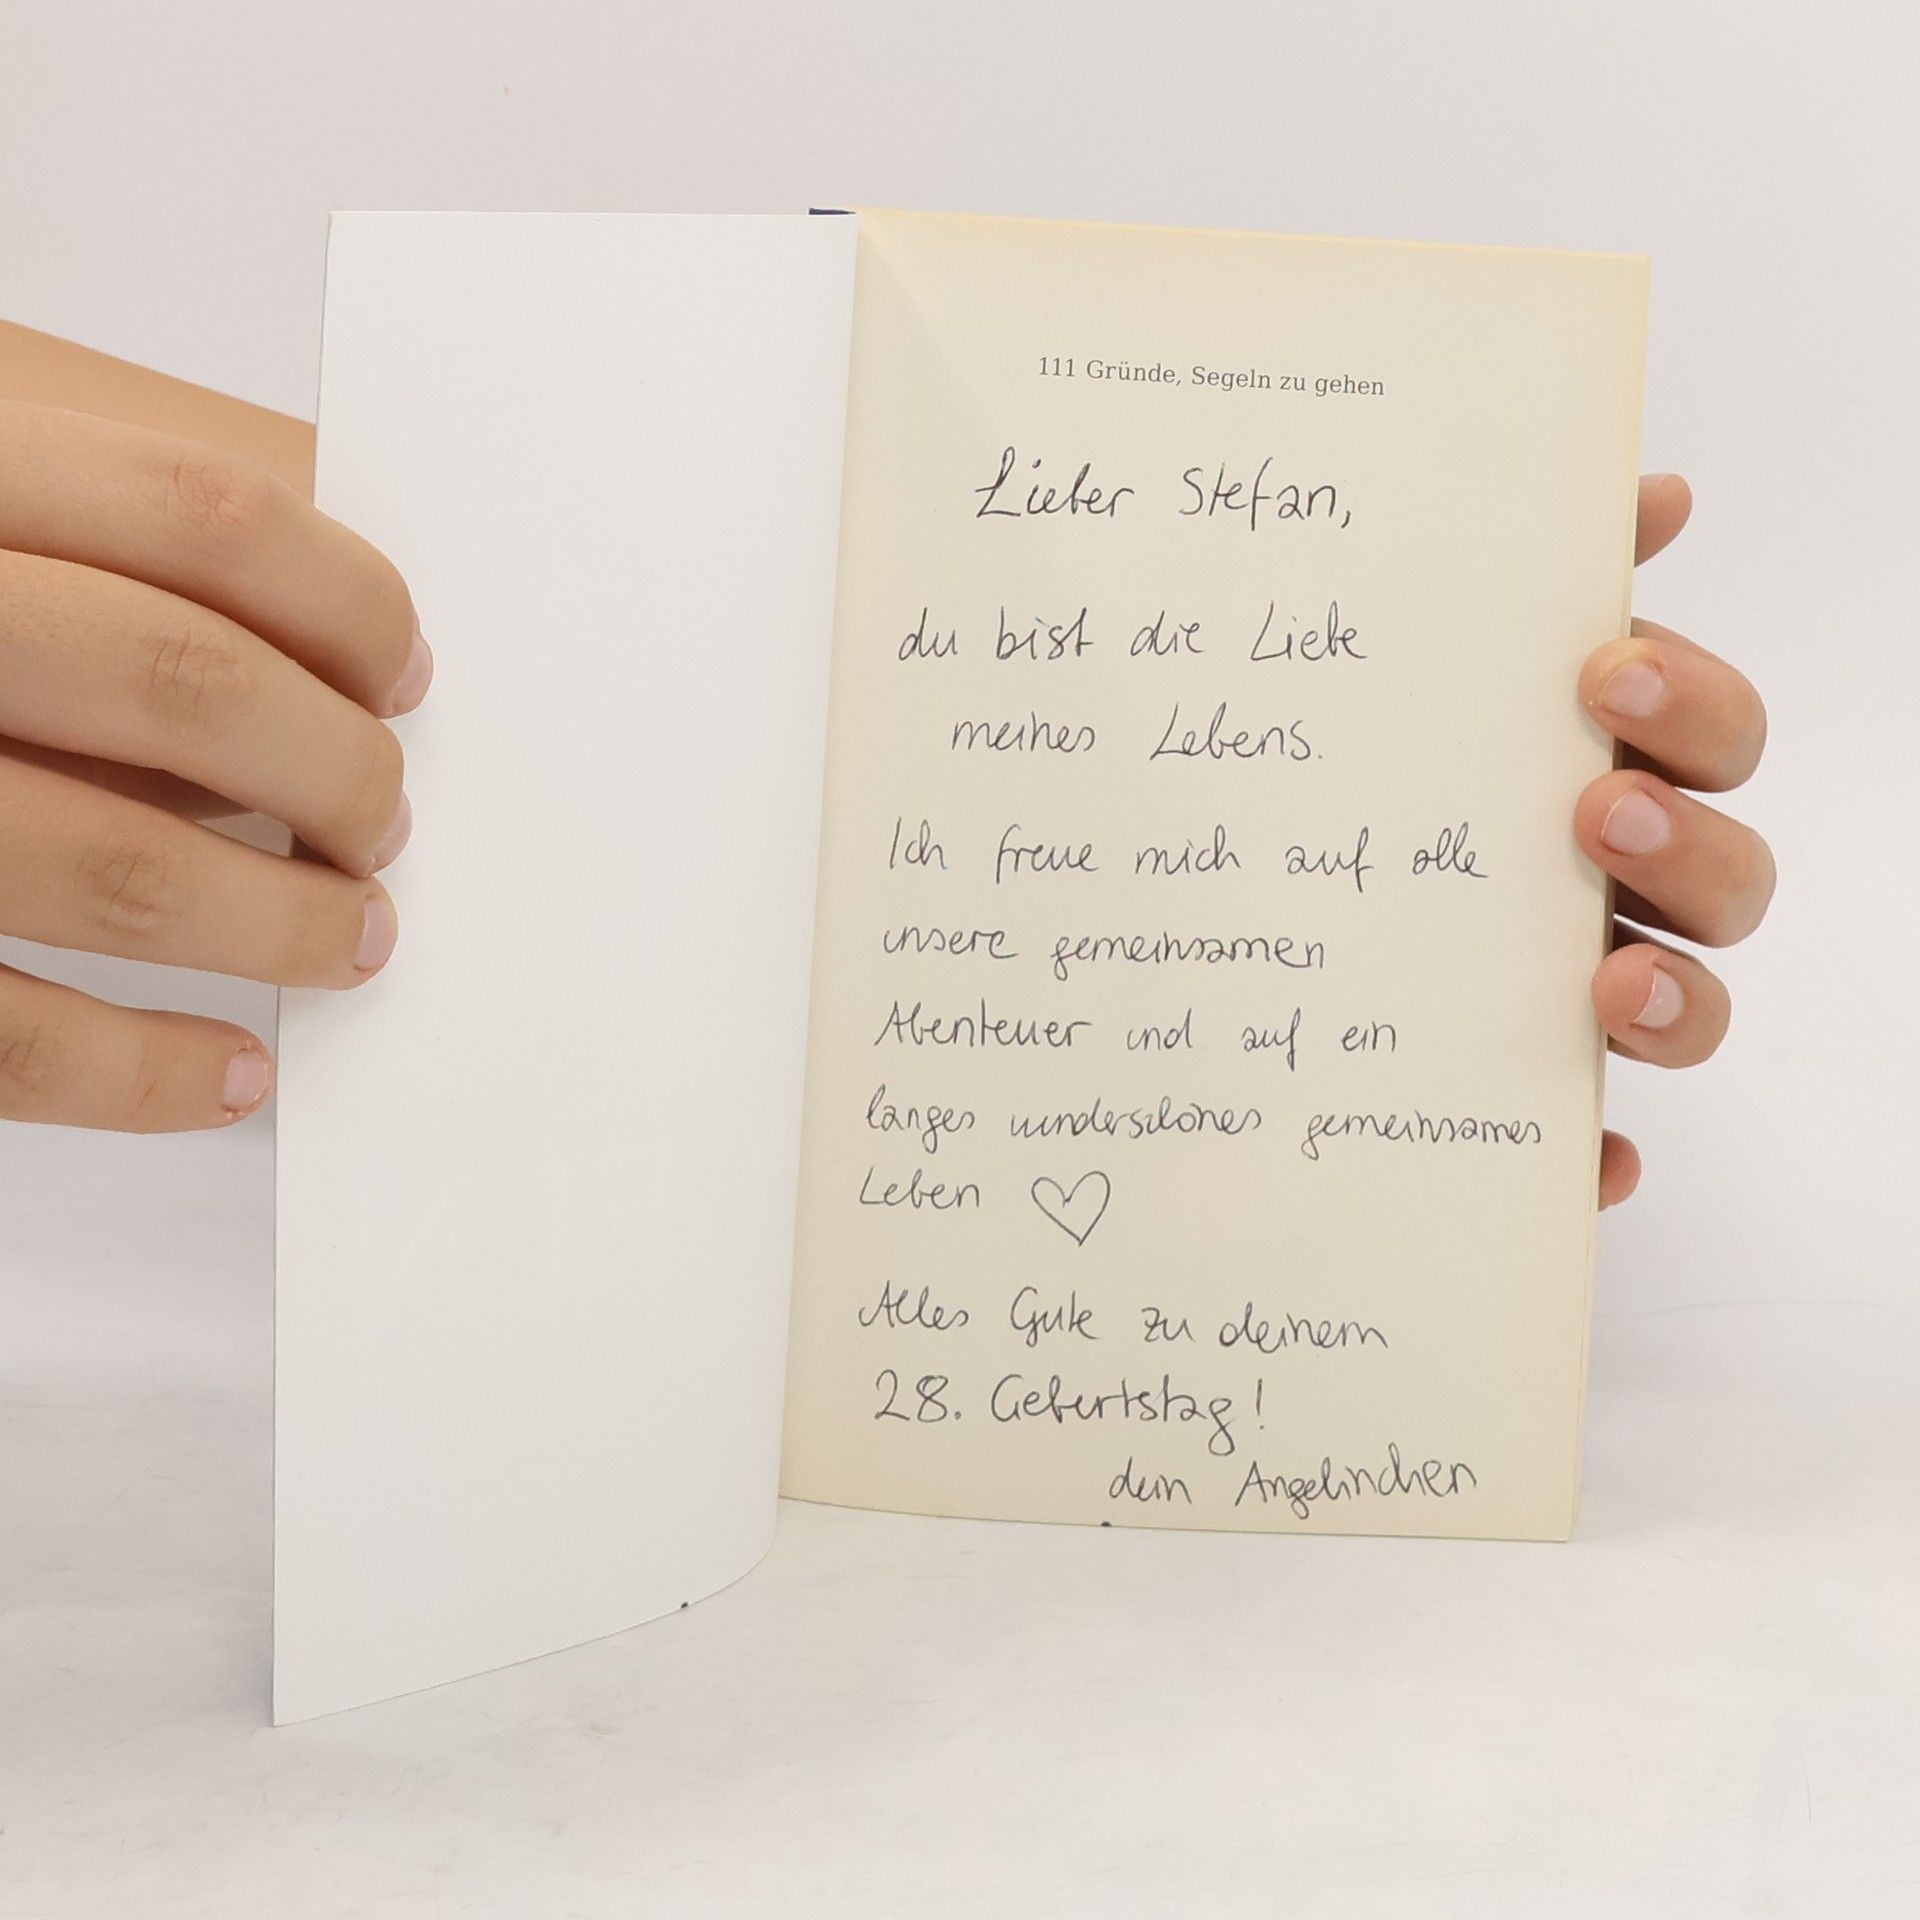 111 Gründe, Segeln zu gehen
Lieber Stefan,
du bist die Liebe
meines Lebens.
Ich freue mich auf alle
unsere gemeinsamen
Abenteuer und auf ein
langes wunderschönes gemeinsames
Leben ♡
Alles Gute zu deinem
28. Geburtstag!
dein Angelinchen